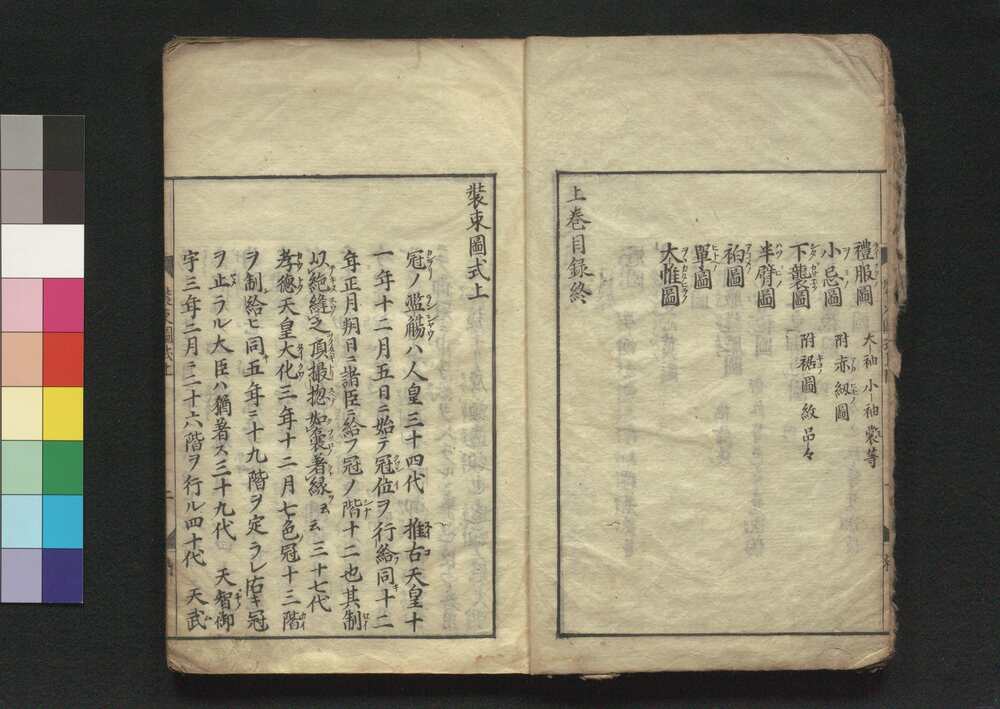 禮服圖 大袖 小袖 裳等
小忌圖 附赤紐圖
下襲圖 附裾圖紋品々
半臂圖
衵圖
單圖
大帷圖
上巻目錄終
裝束圖式上
冠ノ濫觴ハ人皇三十四代 推古天皇十
一年十二月五日ニ始テ冠位ヲ行給同十二
年正月朔日ニ諸臣ニ給フ冠ノ階十二也其制
以絁縫之頂撮揔如囊著緣云云三十七代
孝德天皇大化三年十二月七色冠十三階
ヲ制給ヒ同五年ニ十九階ヲ定ラレ古キ冠
ヲ止ラル大臣ハ猶著ス三十九代 天智御
宇三年二月ニ二十六階ヲ行ル四十代 天武